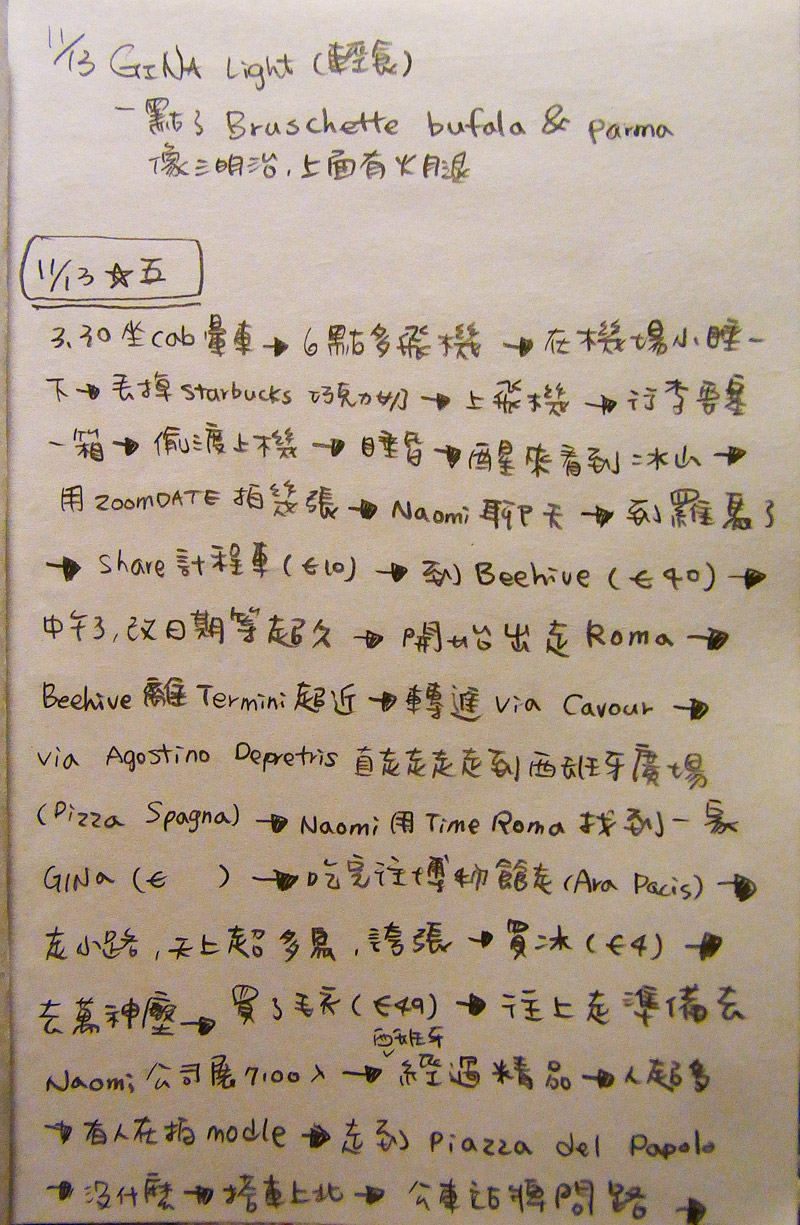 11/13 GINA Light (輕食)
一點了 Bruschette bufala & parma
像三明治,上面有火腿
11/13 ☆五
3.30坐cab暈車→6點多飛機→在機場小睡一
下→丟掉starbucks 巧克力奶→上飛機→行李要塞
一箱→偷渡上機→睡昏→醒來看到冰山→
用zoomDATE拍幾張→Naomi聊天→到羅馬了
→share計程車(€10)→到Beehive(€40)→
中午了,改日期等超久→開始出走Roma→
Beehive離Termini超近→轉進via Cavour→
via Agostino Depretris直走走走走到西班牙廣場
(Pizza Spagna)→Naomi用Time Roma找到一家
GINa(€ )→吃完往博物館走(Ara Pacis)→
走小路,天上超多鳥,誇張→買冰(€4)→
去萬神壂→買了毛衣(€49)→往上走準備去
西班牙
Naomi公司展7:00入→經過精品→人超多
→有人在拍modle→走到Piazza del Papolo
→沒什麼→搭車上北→公車站牌問路→